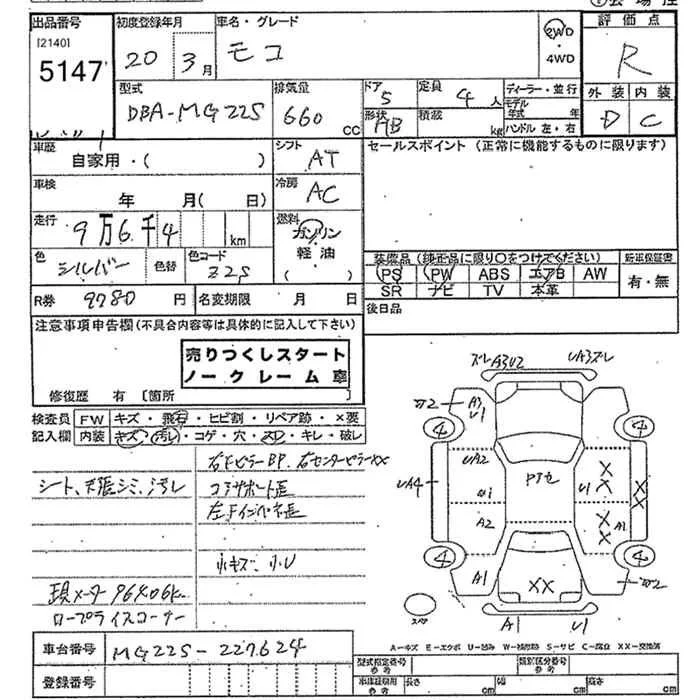 出品番号
[2140]
5147
初度登録年月
20 3月
車名・グレード
モコ
2WD
・4WD
評価点
R
外装 内装
D C
型式
DBA-MG22S
排気量
660 CC
ドア
5
定員
4 人
形状
HB
積載
kg
ディーラー・並行
モデル年式 年
ハンドル 左・右
車歴
自家用・( )
シフト
AT
セールスポイント (正常に機能するものに限ります)
車検
年 月( 日)
冷房
AC
走行
9万6千4 km
燃料
ガソリン
軽油
( )
色
シルバー
色替
色コード
Z2S
装備品 (純正品に限り○をつけてください)
新車保証書
PS PW ABS エアB AW
SR ナビ TV 本革
有・無
R券 9780 円
名変期限 月 日
後日品
注意事項申告欄 (不具合内容等は具体的に記入して下さい)
売りつくしスタート
ノークレーム車
修復歴 有 〔箇所
検査員
記入欄
FW キズ・飛石・ヒビ割・リペア跡・×要
内装 キズ・汚レ・コゲ・穴・メロ・キレ・破レ
右Fピラー BP、右センターピラーXX
シート、天張シミ、汚レ
コアサポート歪
左Fインパネ歪
小キズ、小U
現メーター 96406km
ロープライスコーナー
ズレA3U2
UA3ズレ
A3
U1
4
4
UA2
UA4
U1
U1
XX
A2
A1
XX
4
4
A1
XX
スペア
A1
U1
A-キズ E-エクボ U-凹み W-補修跡 S-サビ C-腐食 XX-交換済
車台番号
MG22S-227624
登録番号
型式指定番号
参考
類別区分番号
参考
車庫証明用
参考
長さ cm
幅 cm
高さ cm